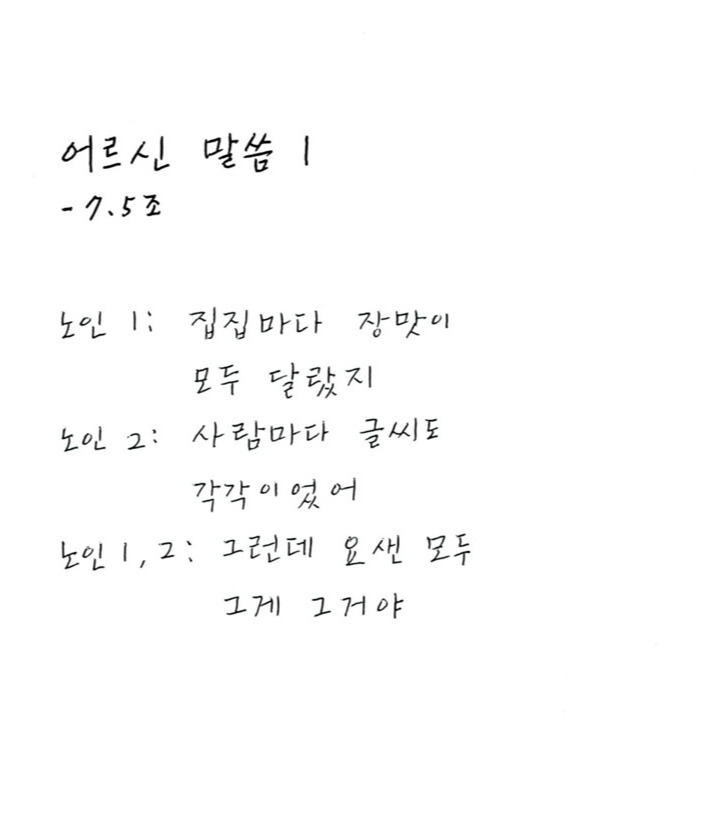 어르신 말씀 1
- 7.5조
노인 1: 집집마다 장맛이
모두 달랐지
노인 2: 사람마다 글씨도
각각이었어
노인1,2: 그런데 요샌 모두
그게 그거야